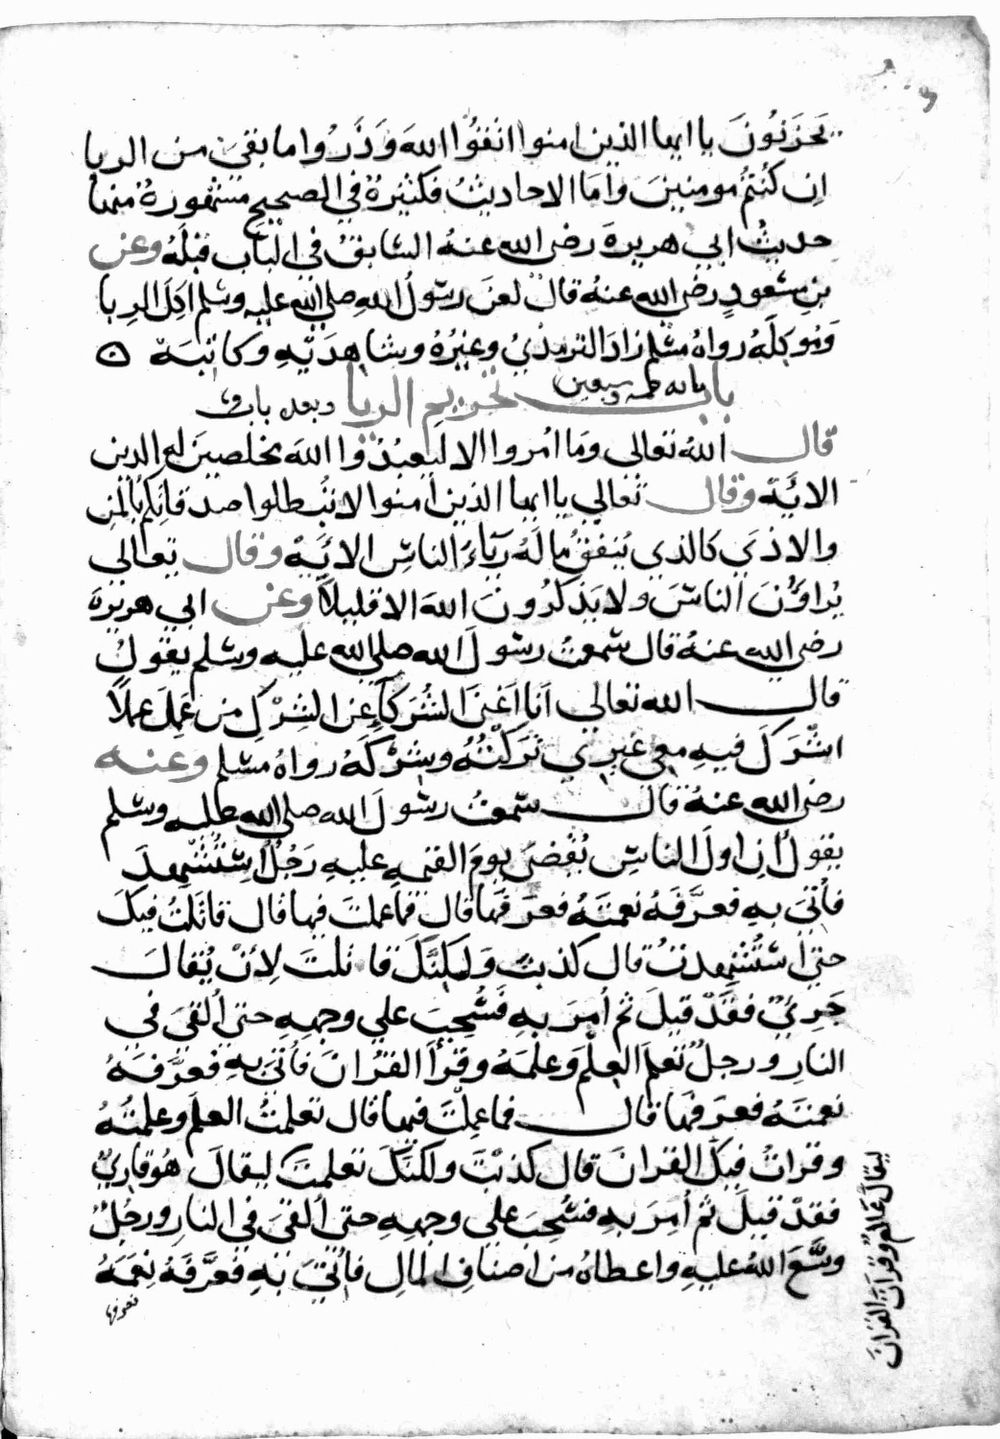 يَحزَنُونَ يا ايها الذين امنوا اتقُوا اللهَ وَذَرُوا ما بقيَ من الربا
ان كُنتُم مومنينَ وأما الاحاديثُ فكثيرةٌ في الصحيحِ مشهورةٌ منها
حديثُ ابي هريرةَ رضي الله عنهُ السَّابقُ في الباب قبلَهُ وعن
بن مسْعودٍ رضي الله عنهُ قال لعنَ رسولُ اللهِ صلي الله عليه وسلم اكلَ الربا
وَمُوكِلَهُ رواهُ مسْلم زادَ الترمذيُ وغيرُهُ وشاهدَيْهِ وكاتبَهُ ه
بابُ تحريمِ الريا
قال اللهُ تعالى ومَا امُروا الا ليَعبُدُوا اللهَ مخلصينَ له الدين
الايَة وقال تعالي يا ايها الذين امنوا لا تُبطلوا صدقاتِكم بالمنِ
والاذي كالذي يُنفقُ مالَهُ ريآءَ الناسِ الايَة وقال تعالى
يُراؤُنَ الناسَ ولا يَذكُرُونَ اللهَ الا قليلاً وعن ابي هريرةَ
رضي الله عنهُ قال سَمعتُ رسُولَ الله صلي الله عليه وسَلم يقولُ
قال الله تعالي اَنا اَغنَى الشُرَكآءِ عن الشِرْكِ من عَمِلَ عملاً
اشرَكَ فيهِ معي غيري تركتُهُ وشِرْكَهُ رواهُ مسْلم وعنه
رضي الله عنهُ قال سَمعتُ رسُولَ الله صلي الله عليه وسَلم
يقولُ اِن اولَ الناسِ يُقضَى يومَ القيمةِ عليهِ رَجُلٌ اسْتُشْهِدَ
فأُتيَ بهِ فعرَّفَهُ نعمتَهُ فعرَفَها قال فما عملتَ فيها قال قاتَلتُ فيكَ
حتى اسْتُشْهِدتُ قال كذبتَ ولكنَّكَ قاتلتَ لِأَنْ يُقالَ
جَرِيٌ فقَدْ قيلَ ثم اُمرَ بهِ فسُحِبَ علي وجههِ حتى اُلقيَ في
النارِ ورجلٌ تعلمَ العِلْمَ وعلمَهُ وقرأَ القُرانَ فأُتيَ بهِ فعرَّفَهُ
نعمتَهُ فعرَفَها قال فما عمِلتَ فيها قال تعلمتُ العلمَ وعلمتُهُ
وقراتُ فيكَ القرانَ قال كذبْتَ ولكنَّكَ تعلمتَ ليقالَ هُو قاريٌ
فقدْ قيلَ ثم اُمِرَ بهِ فسُحِبَ علي وجههِ حتى اُلقيَ في النارِ ورجُلٌ
وسَّعَ اللهُ عليهِ واعطاهُ من اصنافِ المالِ فأُتيَ بهِ فعرَّفَهُ نِعَمَهُ
فعرفها
ليقالَ عَالمٌ وقراتَ القرانَ